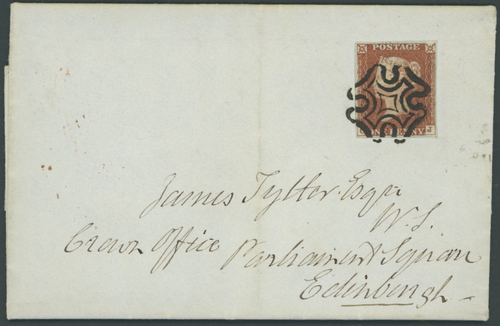 POSTAGE
James Tytler Esqr
W.S.
Crown Office Parliament Square
Edinburgh